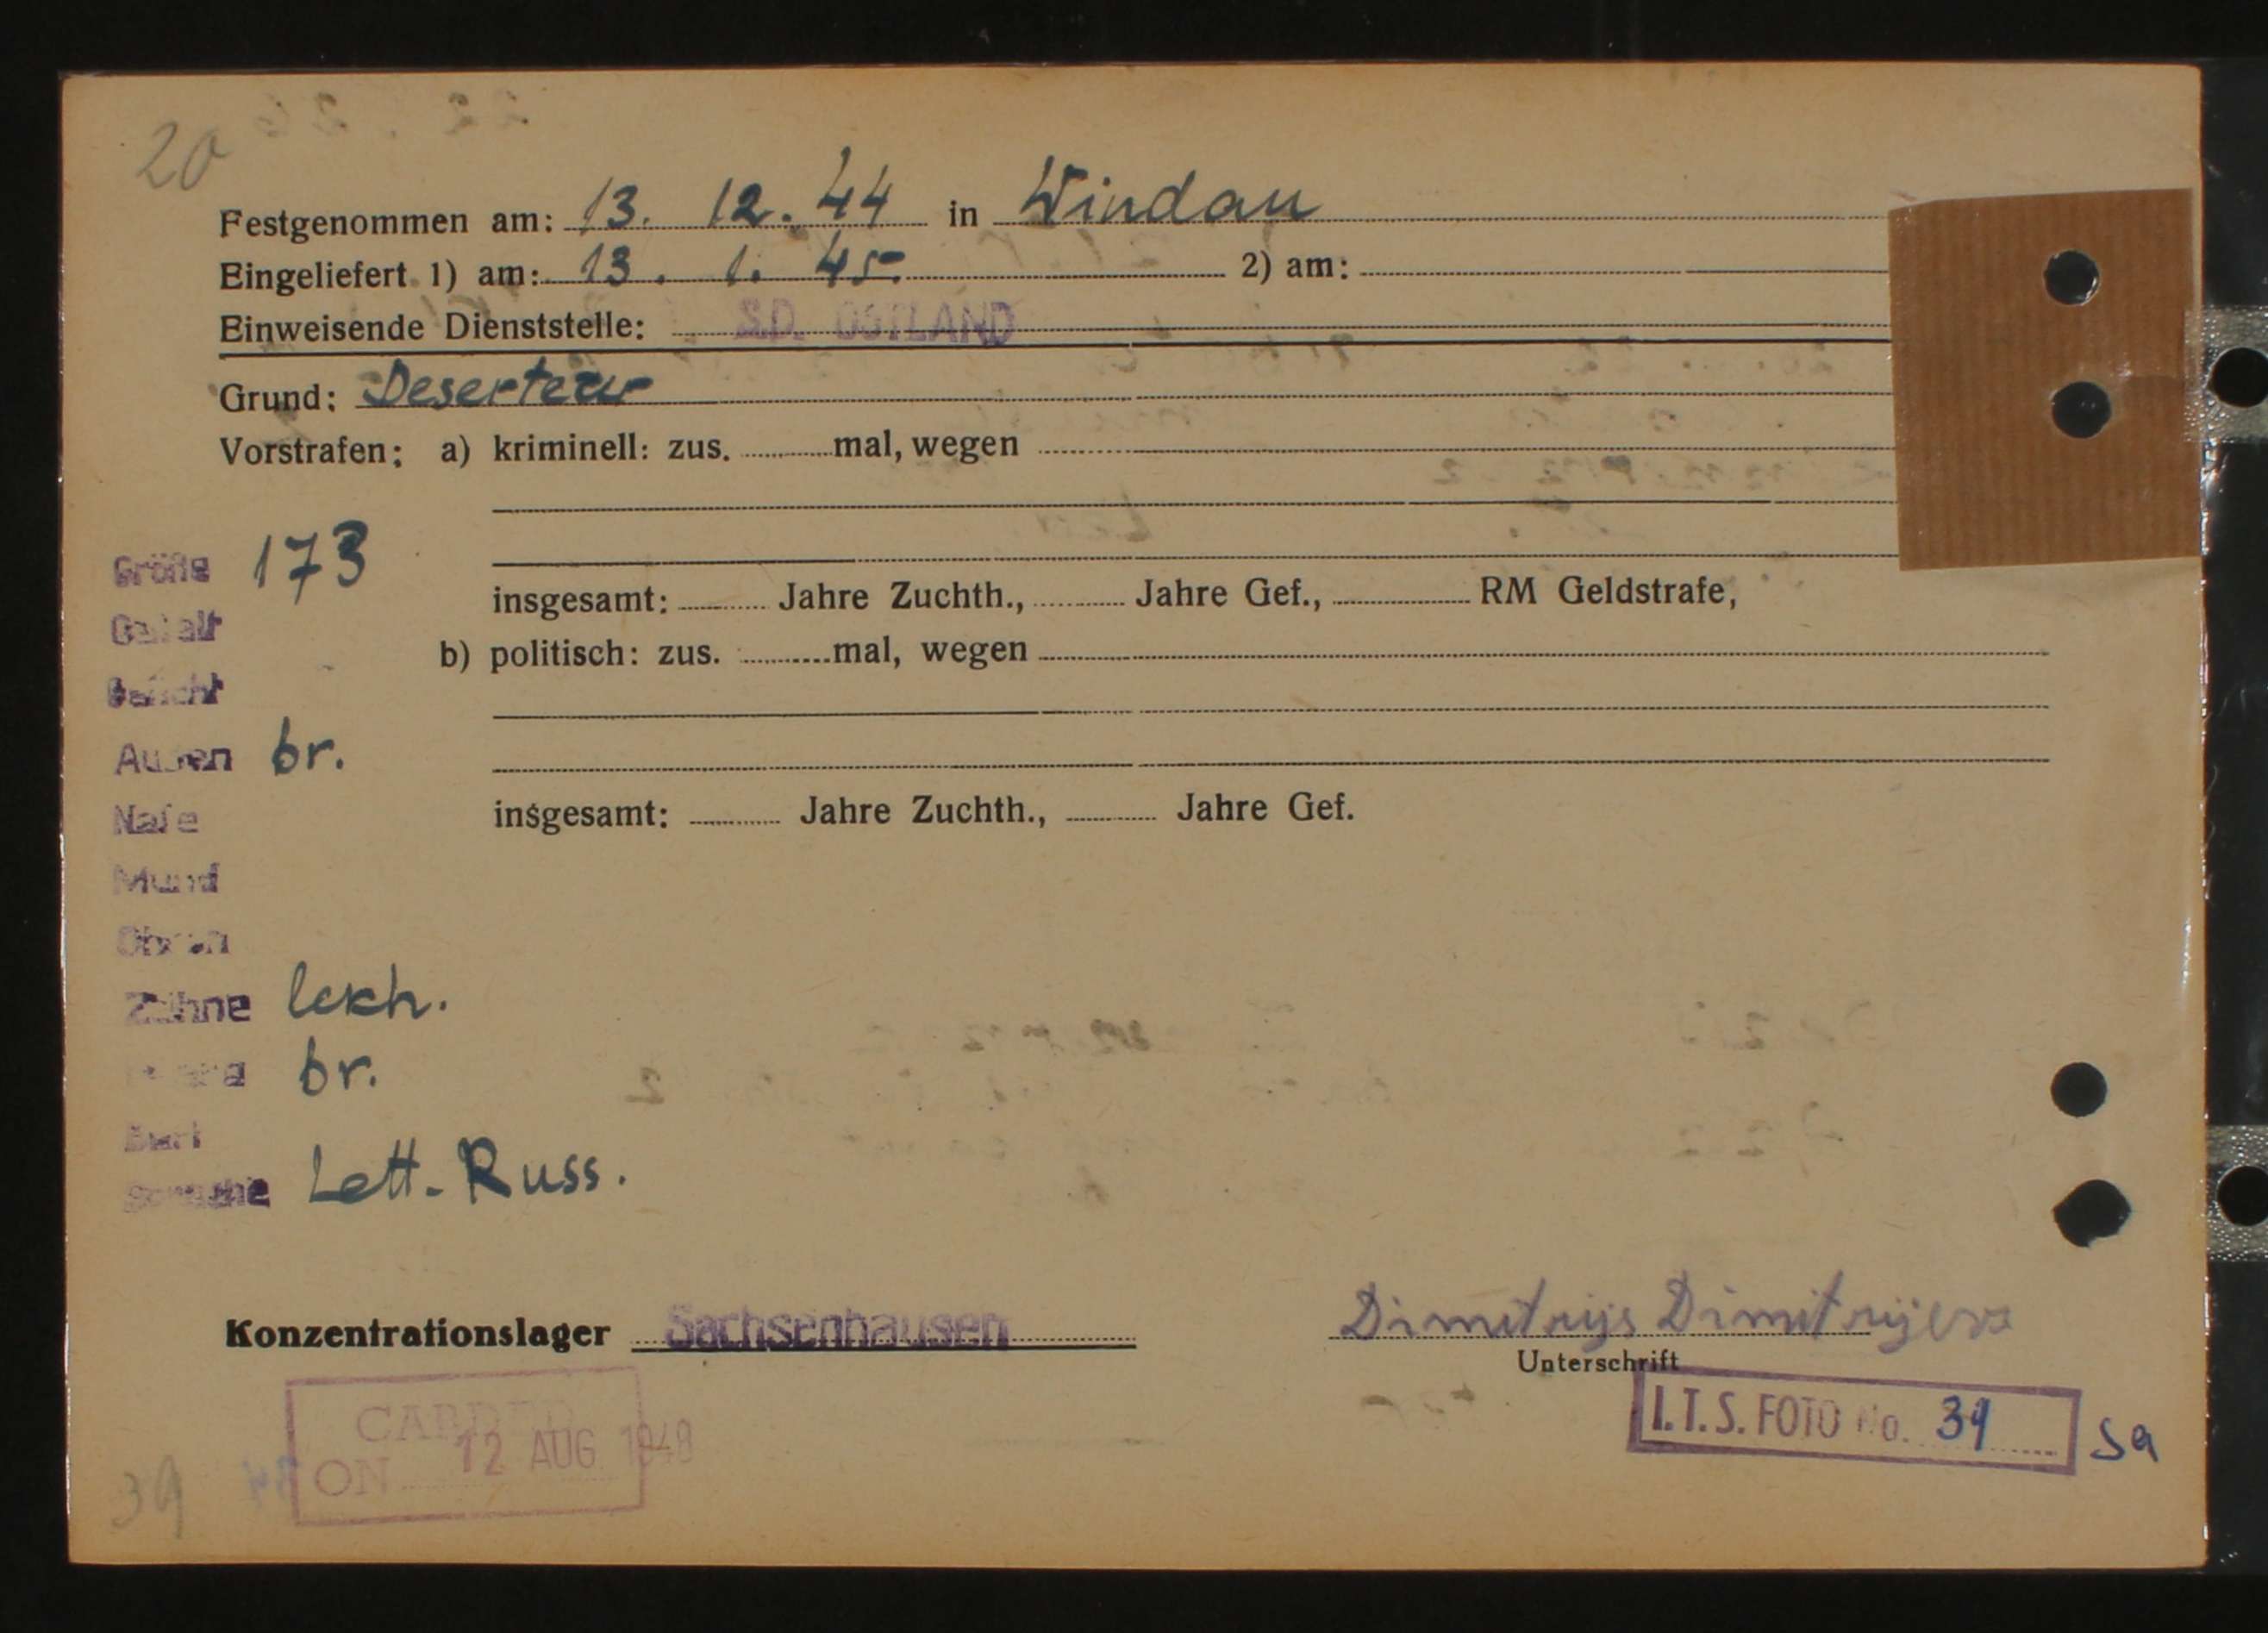 20
Festgenommen am: 13. 12. 44 in Windau
Eingeliefert 1) am: 13. 1. 45. 2) am:
Einweisende Dienststelle: S.D. OSTLAND
Grund: Deserteur
Vorstrafen: a) kriminell: zus. mal, wegen
Größe 173
insgesamt: Jahre Zuchth., Jahre Gef., RM Geldstrafe,
Gestalt
b) politisch: zus. mal, wegen
Gesicht
Augen br.
Nase
insgesamt: Jahre Zuchth., Jahre Gef.
Mund
Ohren
Zähne
br.
Bart
Sprache Lett.-Russ.
Konzentrationslager Sachsenhausen
Dimitrijs Dimitrijevs
Unterschrift
I.T.S. FOTO No. 39 Sa
CARDED
ON 12 AUG 1948
39